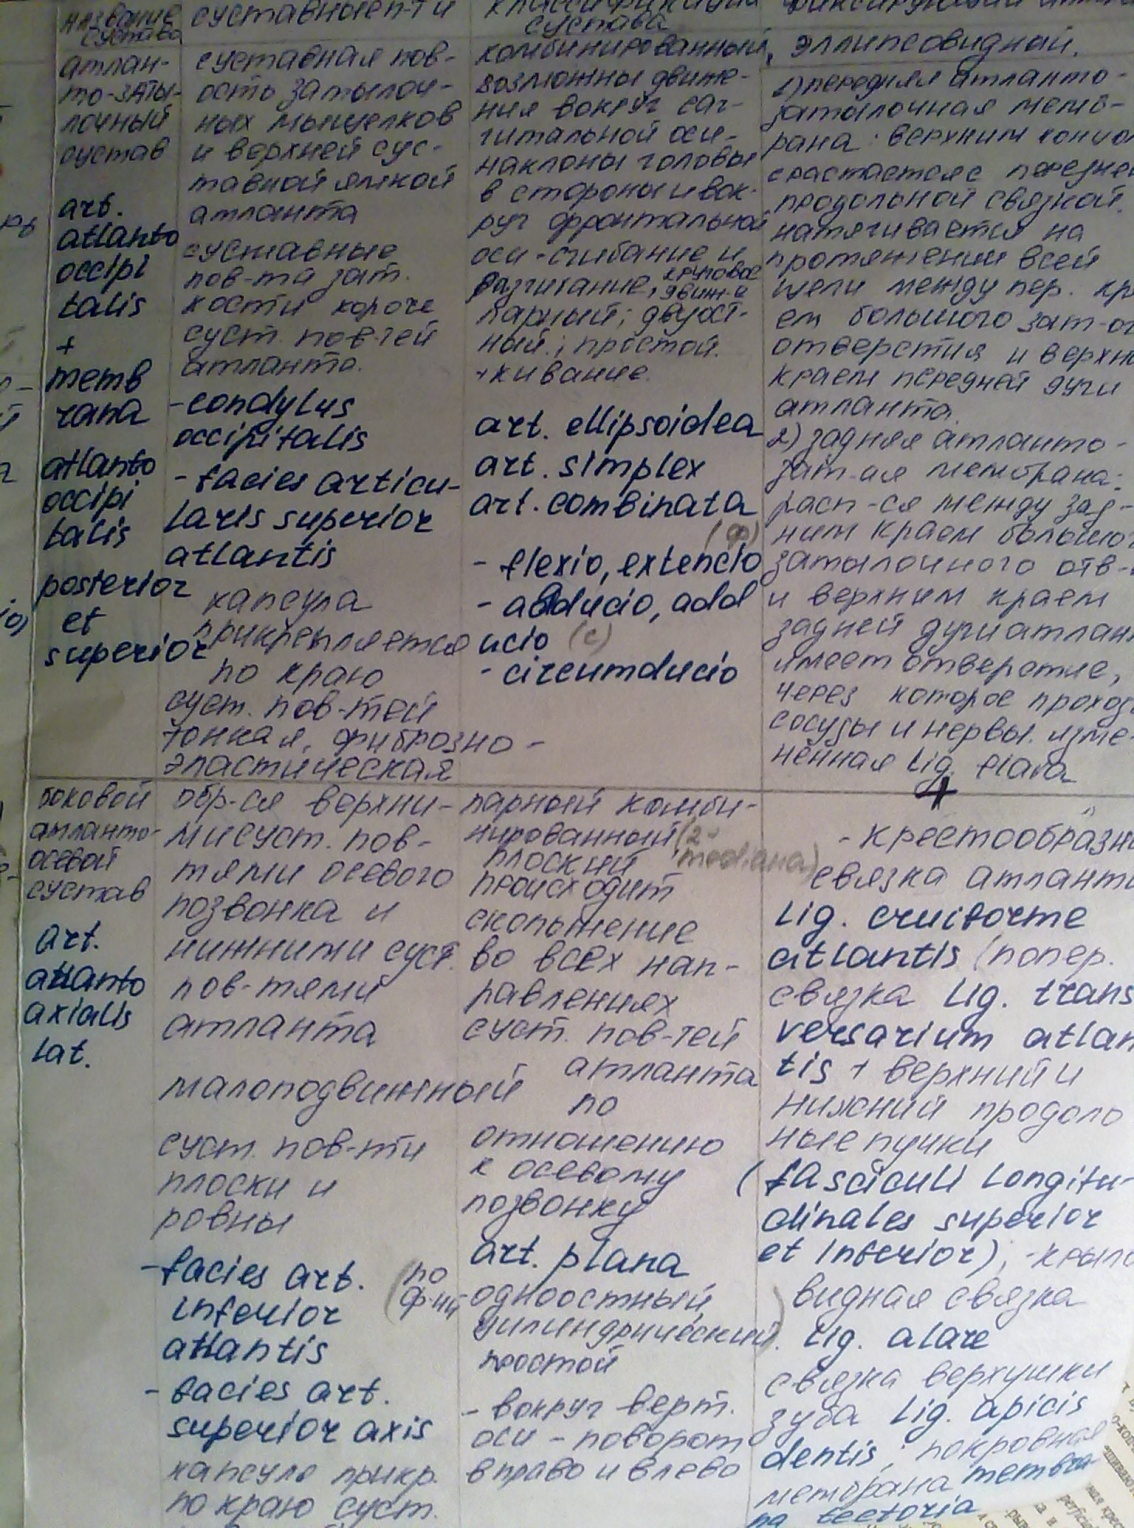 название
сустава
атлан-
то-заты-
лочный
сустав
art.
atlanto
occipi
talis
+
memb
rana
atlanto
occipi
talis
posterior
et
superior
суставные п-ти
суставная пов-
ость затылоч-
ных мыщелков
и верхней сус-
тавной ямкой
атланта
суставные
пов-та зат.
кости короче
суст. пов-тей
атланта.
-condylus
occipitalis
- facies articu-
laris superior
atlantis
капсула
прикрепляется
по краю
суст. пов-тей
тонкая, фиброзно -
эластическая
классификация
сустава
комбинированный, эллипсовидный.
возможны движе-
ния вокруг саг-
гитальной оси-
наклоны головы
в стороны и вок-
руг фронтальной
оси-сгибание и
разгибание, круговое
движ-е
парный; двуост-
ный; простой.
+кивание.
art. ellipsoidea
art. simplex
art. combinata
(ф)
- flexio, extencio
- abducio, add
ucio (с)
- circumducio
1) передняя атланто-
затылочная мемб-
рана: верхним
срастается с
продольной связкой.
натягивается на
протяжении всей
щели между пер.
ем большого зат-ог
отверстия и
краем передней дуги
атланта.
2) задняя атланто-
зат-ая мембрана:
расп-ся между зад-
ним краем
затылочного отв-
и верхним краем
задней дуги
имеет отверстие,
через которое
сосуды и нервы. изме-
нённая lig. flava
+
боковой
атланто-
осевой
сустав
art.
atlanto
axialis
lat.
обр-ся верхни-
ми суст. пов-
тями осевого
позвонка и
нижними суст.
пов-тями
атланта
малоподвижный
суст. пов-ти
плоски и
ровны
-facies art.
inferior
atlantis
- facies art.
superior axis
капсула прикр.
по краю суст.
парный комби-
нированный (2
mediana)
плоский
происходит
скольжение
во всех нап-
равлениях
суст. пов-тей
атланта
по
отношению
к осевому
позвонку
art. plana
(по
ф-ции
одноостный,
цилиндрический).
простой
- вокруг верт.
оси - поворот
вправо и влево
- крестообразн
связка
lig. cruiforme
atlantis (попер.
связка lig. trans
versarium atlan
tis + верхний и
нижний продоль
ные пучки
(fasciculi longitu-
dinales superior
et inferior); -крыло
видная связка
lig. alare
связка верхушки
зуба lig. apicis
dentis; покровная
мембрана membra
na tectoria